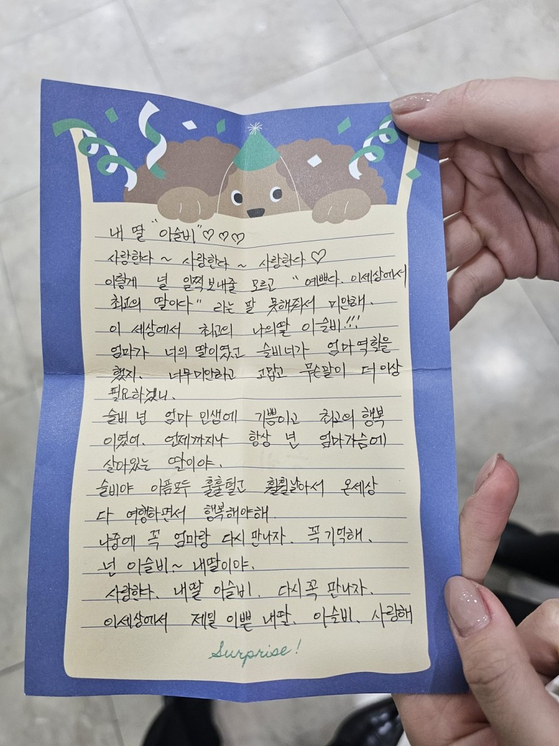 내 딸 "이슬비" ♡♡♡
사랑한다 ~ 사랑한다 ~ 사랑한다 ♡
이렇게 널 일찍 보내줄 모르고 "예쁘다. 이세상에서
최고의 딸이다" 라는 말 못해줘서 미안해.
이 세상에서 최고의 나의딸 이슬비!!!
엄마가 너의 딸이였고 슬비너가 엄마역할을
했지. 너무미안하고 고맙고 무슨말이 더이상
필요하겠니.
슬비 넌 엄마 인생에 기쁨이고 최고의 행복
이였어. 언제까지나 항상 넌 엄마가슴에
살아있는 딸이야.
슬비야 아픔모두 훌훌털고 훨훨날아서 온세상
다 여행하면서 행복해야해
나중에 꼭 엄마랑 다시 만나자. 꼭기억해.
넌 이슬비~ 내딸이야.
사랑한다. 내딸 이슬비. 다시꼭 만나자.
이세상에서 제일 이쁜 내딸. 이슬비. 사랑해
Surprise!